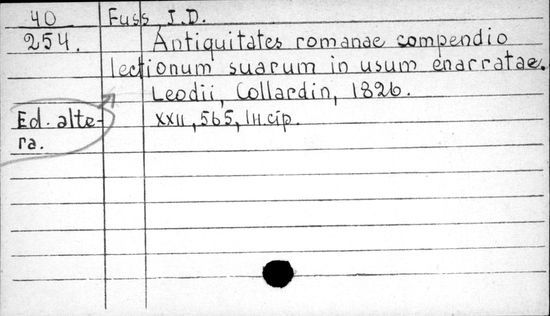 40 Fuss, J.D.
254. Antiquitates romanae compendio
lectionum suarum in usum enarratae.
Leodii, Collardin, 1826.
Ed. alte- XXII, 565, IH.cip.
ra.